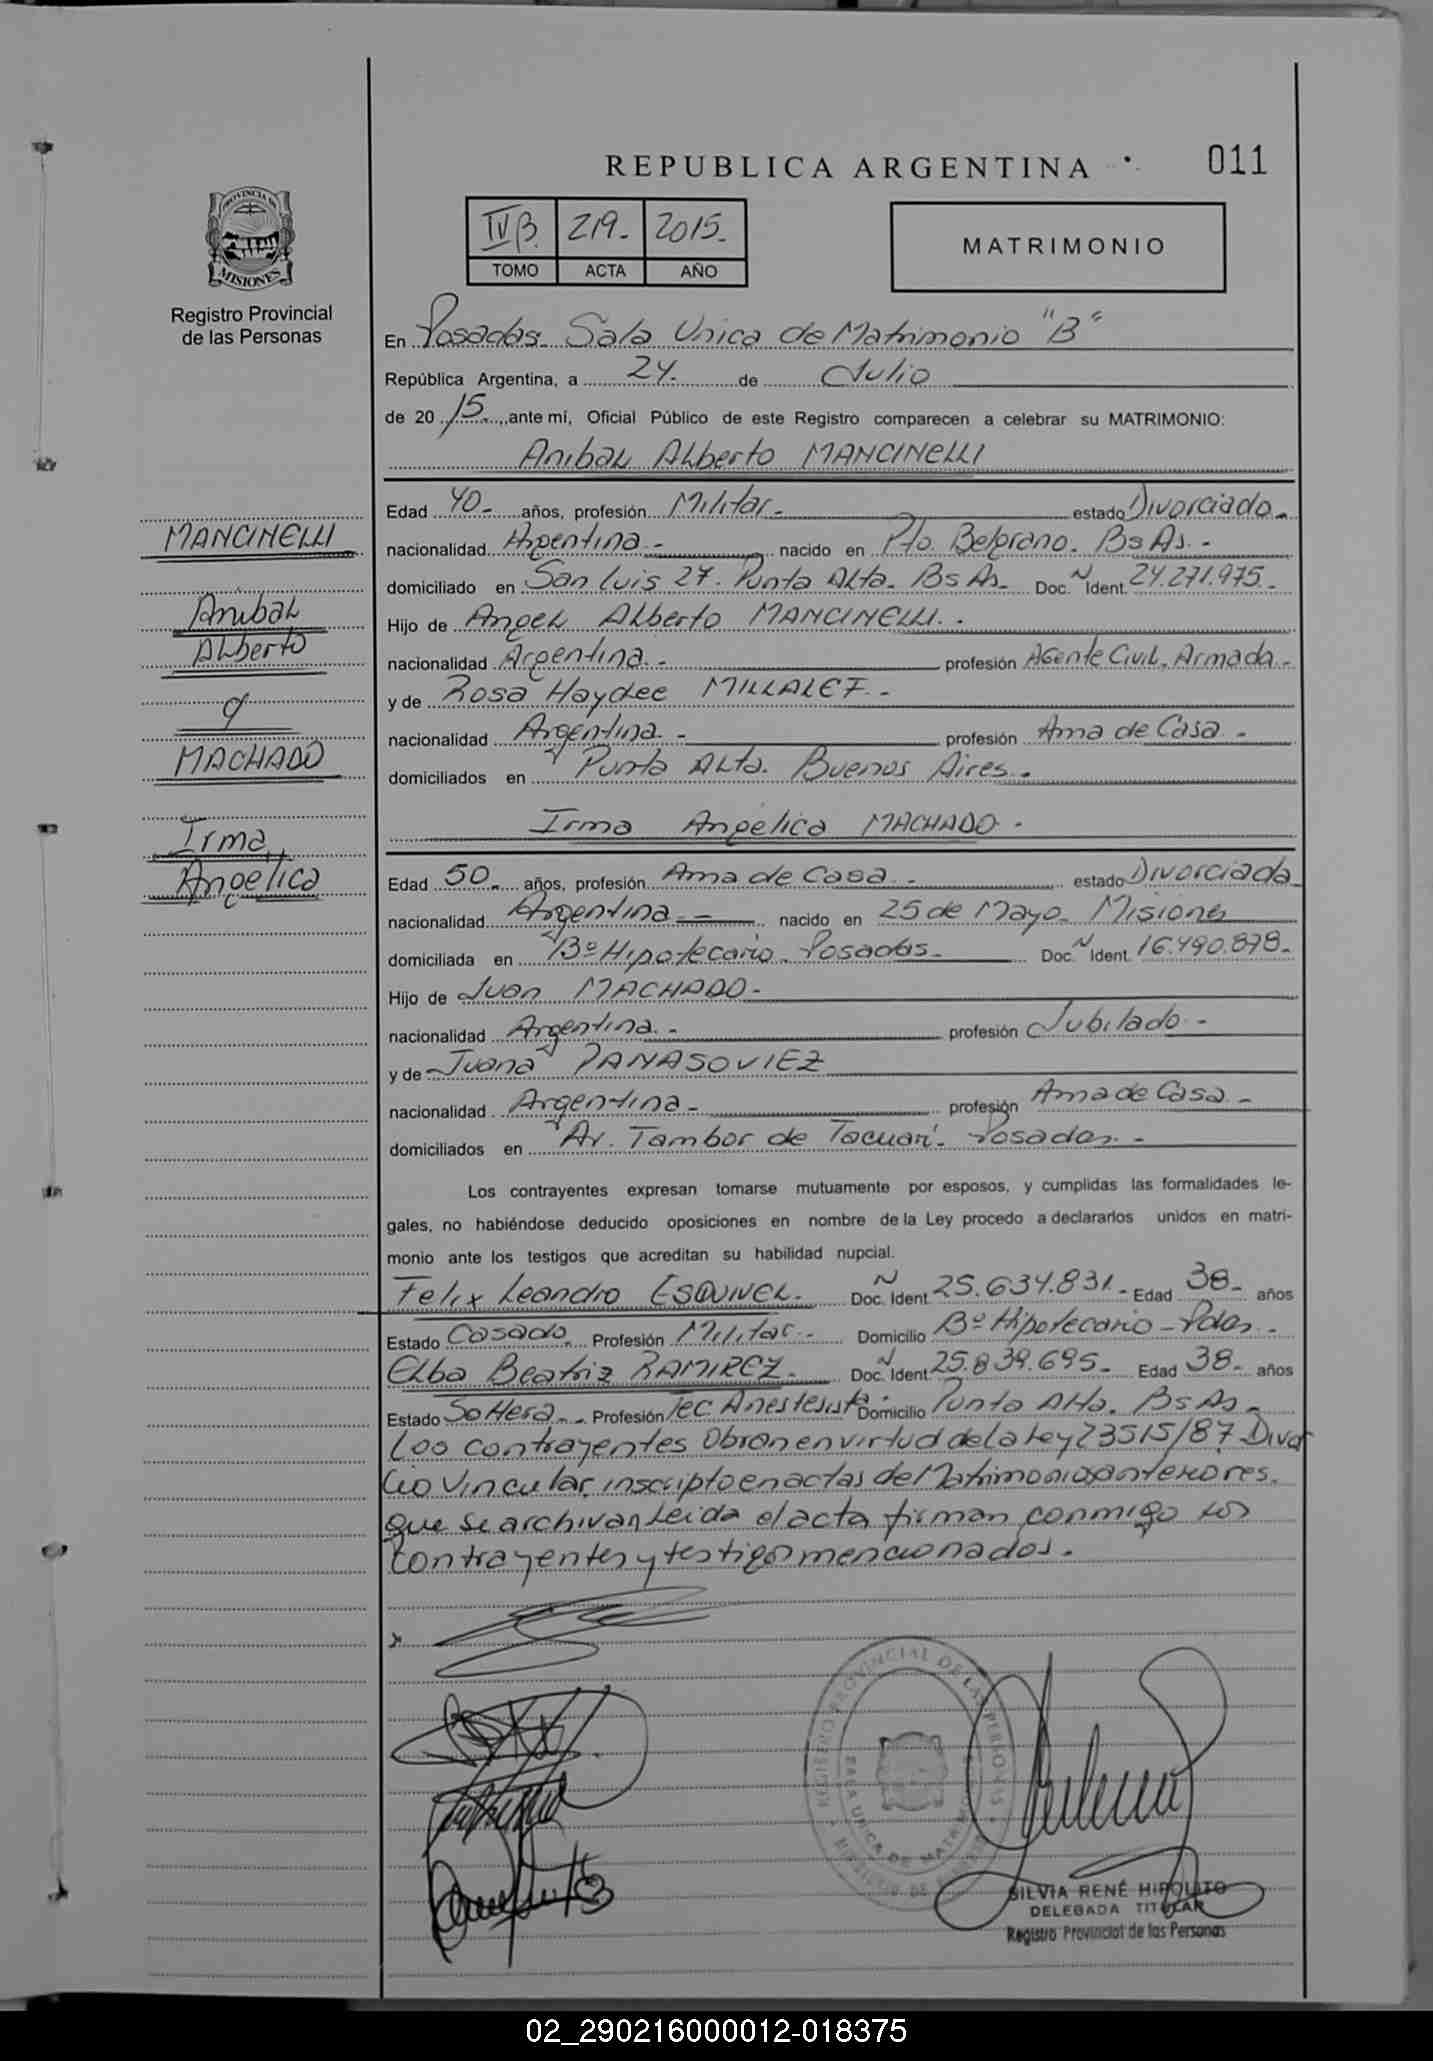 REPUBLICA ARGENTINA
011
PROVINCIA DE MISIONES
Registro Provincial
de las Personas
IV B. 219- 2015-
TOMO ACTA AÑO
MATRIMONIO
En Posadas Sala Unica de Matrimonio "B"
República Argentina, a 24- de Julio
de 20 15 ante mí, Oficial Público de este Registro comparecen a celebrar su MATRIMONIO:
Anibal Alberto MANCINELLI
MANCINELLI
Anibal
Alberto
y
MACHADO
Irma
Angelica
Edad 40- años, profesión Militar- estado Divorciado-
nacionalidad Argentina- nacido en Pto. Belgrano. Bs As.-
domiciliado en San Luis 27. Punta Alta. Bs As- Doc. N Ident. 24.271.975-
Hijo de Angel Alberto MANCINELLI.-
nacionalidad Argentina.- profesión Agente Civil, Armada-
y de Rosa Haydee MILLALEF.-
nacionalidad Argentina.- profesión Ama de Casa-
domiciliados en Punta Alta. Buenos Aires.
Irma Angélica MACHADO-
Edad 50- años, profesión Ama de Casa.- estado Divorciada
nacionalidad Argentina- nacido en 25 de Mayo- Misiones
domiciliada en Bº Hipotecario. Posadas- Doc. N Ident. 16.490.878-
Hijo de Juan MACHADO-
nacionalidad Argentina.- profesión Jubilado-
y de Juana PANASOVIEZ
nacionalidad Argentina- profesión Ama de Casa-
domiciliados en Av. Tambor de Tacuarí. Posadas.-
Los contrayentes expresan tomarse mutuamente por esposos, y cumplidas las formalidades le-
gales, no habiéndose deducido oposiciones en nombre de la Ley procedo a declararlos unidos en matri-
monio ante los testigos que acreditan su habilidad nupcial.
Felix Leandro ESQUIVEL. Doc. N Ident. 25.634.831- Edad 38- años
Estado Casado Profesión Militar- Domicilio Bº Hipotecario-Pdas.-
Elba Beatriz RAMIREZ. Doc. N Ident. 25.839.695- Edad 38- años
Estado Soltera- Profesión Tec Anestesista. Domicilio Punta Alta. Bs As-
Los contrayentes Obran en virtud de la Ley 23515/87 Divor
cio Vincular, inscripto en actas de Matrimonios anteriores.
que se archivan Leida el acta firman conmigo los
contrayentes y testigos mencionados.
REGISTRO PROVINCIAL DE LAS PERSONAS
SALA UNICA DE MATRIMONIO
SILVIA RENÉ HIPOLITO
DELEGADA TITULAR
Registro Provincial de las Personas
02_290216000012-018375